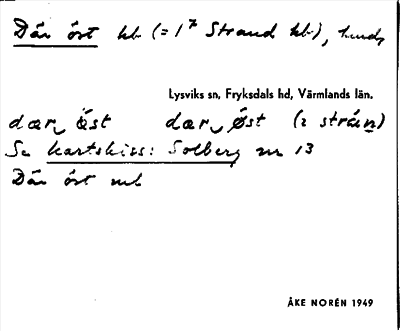 Där öst hb (= 1⁷ Strand hb), hmd,
Lysviks sn, Fryksdals hd, Värmlands län.
dær öst dær øst (i strán)
Se kartskiss: Solberg nr 13
Där öst mb
ÅKE NORÉN 1949